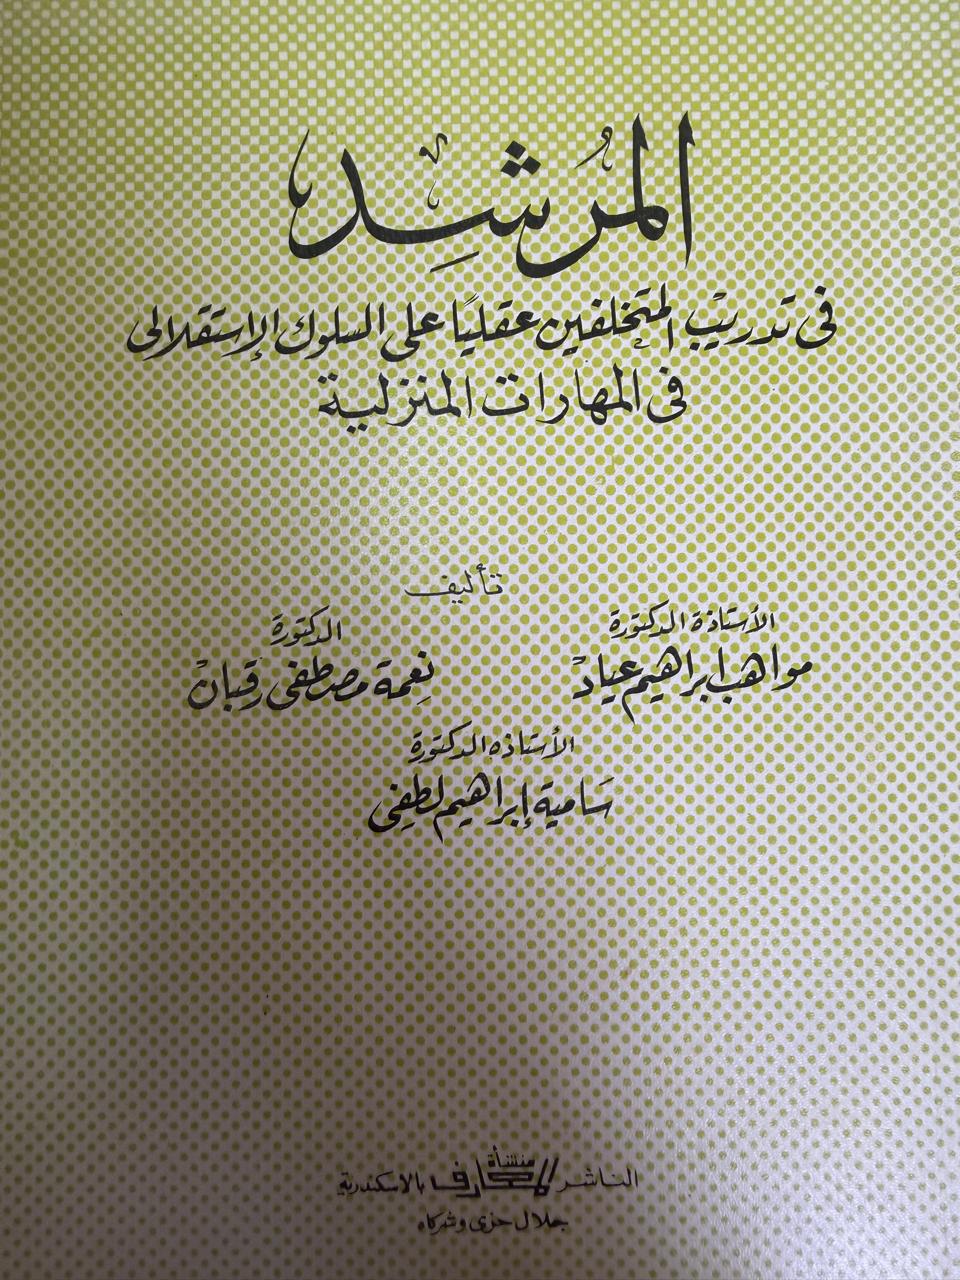 المرشد
فى تدريب المتخلفين عقليًا على السلوك الإستقلالى
فى المهارات المنزلية
تأليف
الأستاذة الدكتورة
مواهب ابراهيم عياد
الدكتورة
نعمة مصطفى رقبان
الأستاذه الدكتورة
سامية إبراهيم لطفى
الناشر منشأة المعارف بالاسكندرية
جلال حزى وشركاه